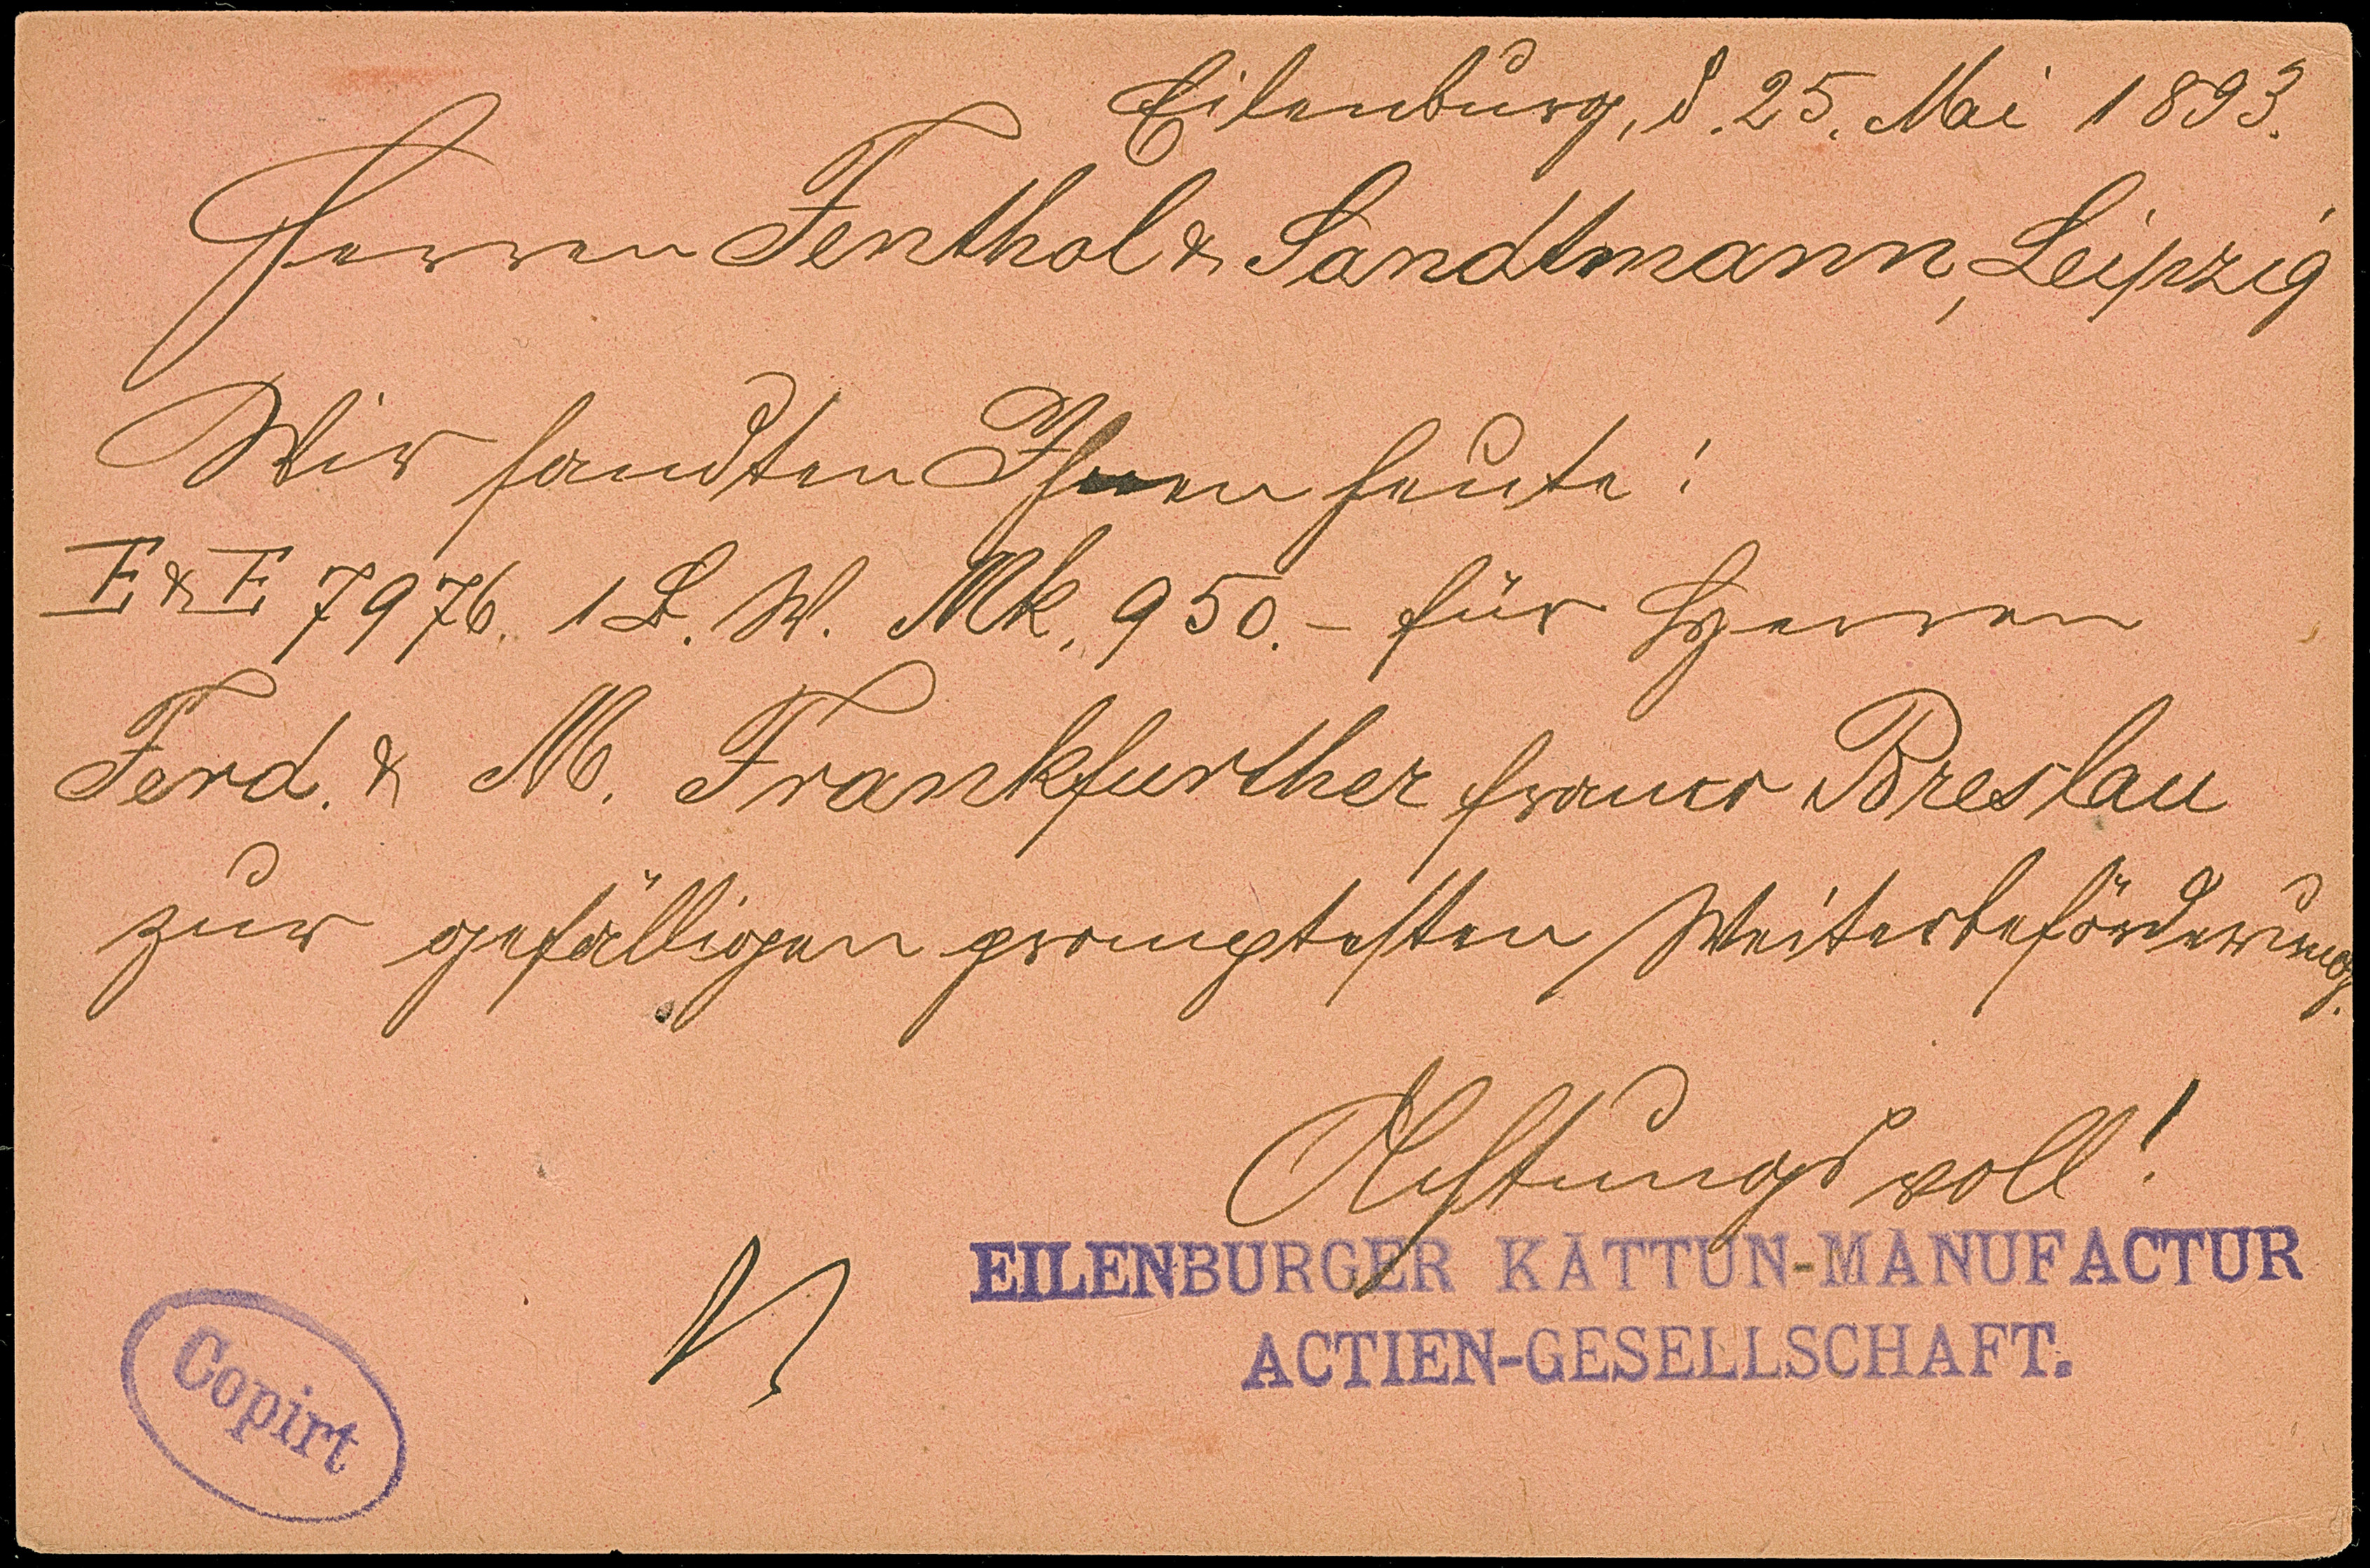 Eilenburg, d. 25. Mai 1893.
Herren Fenthol & Sandtmann, Leipzig
Wir sandten Ihnen heute:
E & E 7976. 1 L. W. Mk. 950.- für Herren
Ferd. & M. Frankfurther franco Breslau
zur gefälligen promptesten Weiterbeförderung.
Achtungsvoll!
EILENBURGER KATTUN-MANUFACTUR
ACTIEN-GESELLSCHAFT.
Copirt